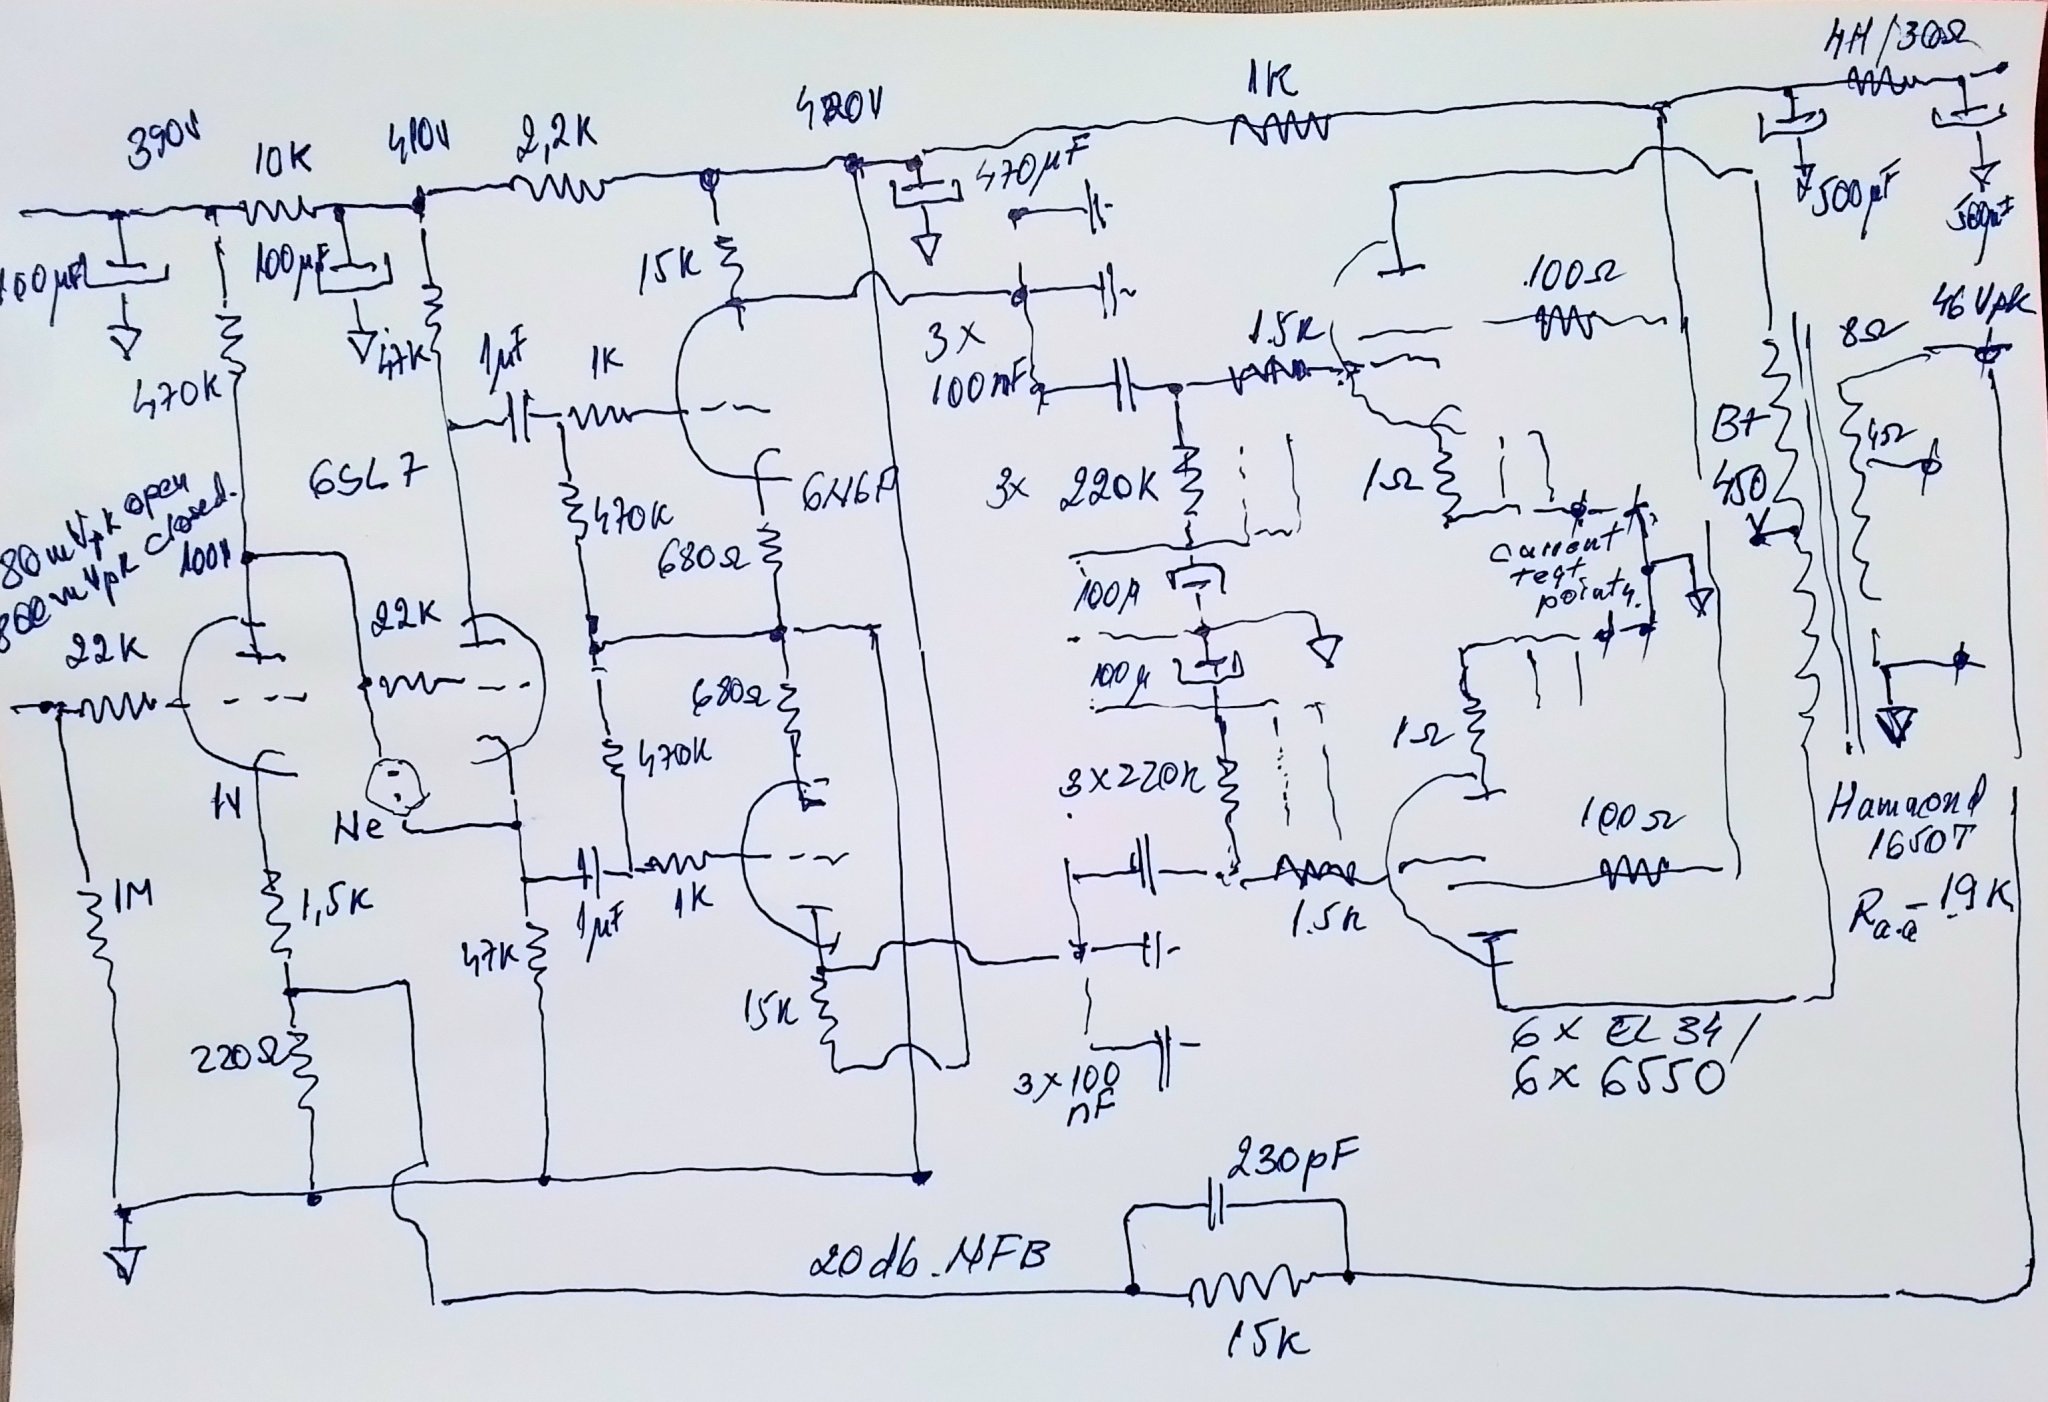 4H/30Ω
1K
420V
2,2K
410V
390V
10K
470µF
500µF
100µF
15K
100Ω
46Vpk
8Ω
1.5K
47K
1µF
1K
3x
100nF
470K
B+
450V
4Ω
6SL7
6N6P
470K
3x 220K
1Ω
80mVpk open
800mVpk closed.
100V
680Ω
current
test
points.
100µ
22K
22K
680Ω
100µ
470K
1Ω
3x220K
1V
Ne
100Ω
Hammond
1650T
Ra-a - 1.9K
1M
1,5K
1µF
1K
1.5K
47K
15K
6x EL34/
6x 6550
220Ω
3x100
nF
230pF
20db.NFB
15K